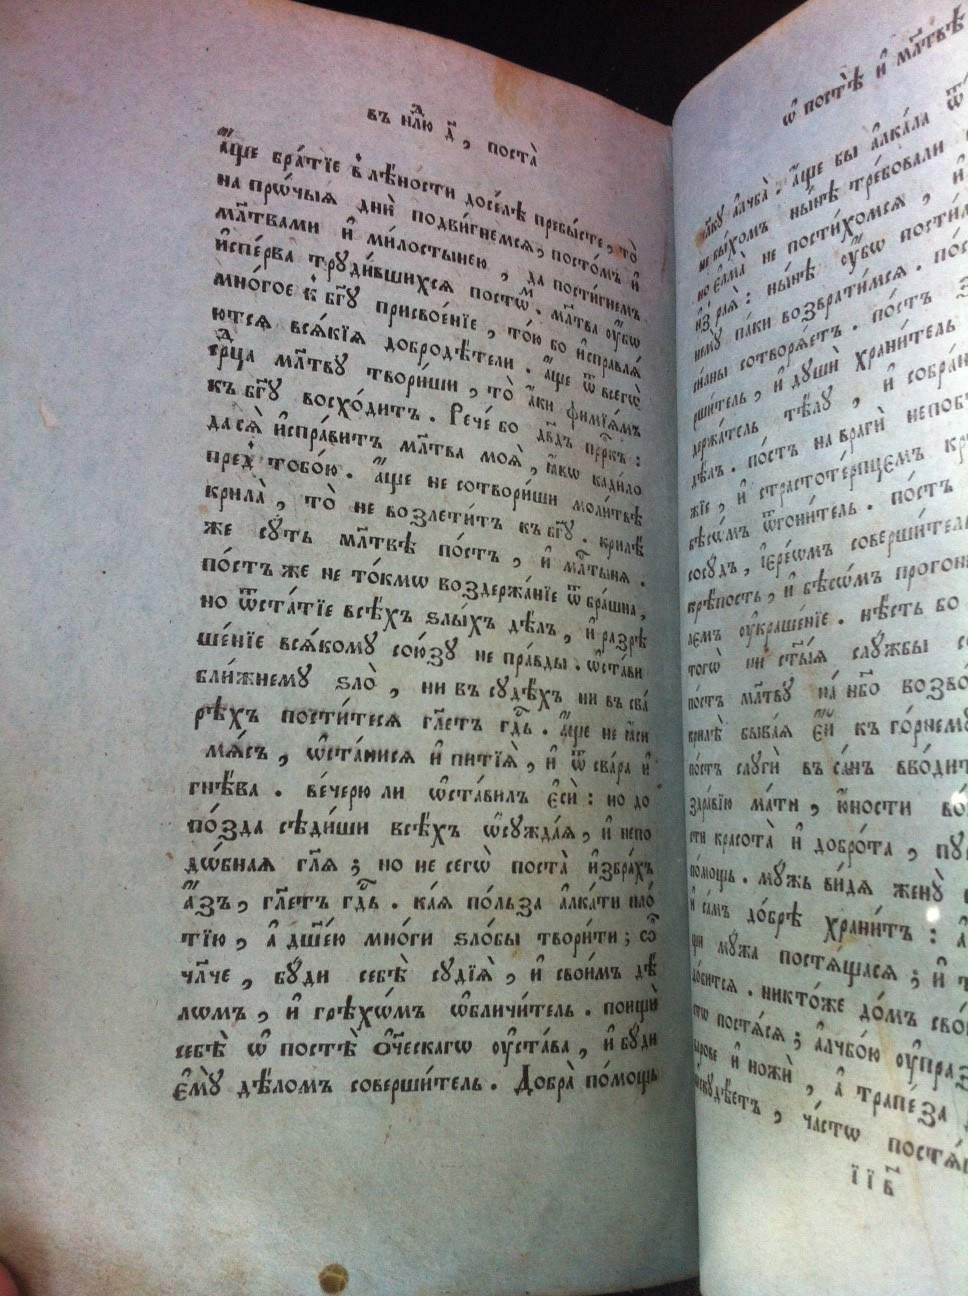 въ нлⷣю д҃, поста̀
а҆́ще бра́тїе в҆ лѣ́ности досе́лѣ пребы́сте, то̀
на прѡ́чыѧ днѝ подви́гнемсѧ, посто́мъ и҆
мл҃твами и҆ ми́лостынею, да пости́гнемъ
и҆спе́рва труди́вшихсѧ посто́мъ. мл҃тва ᲂу҆́бѡ
мно́гое к҆ бг҃у присвое́нїе, то́ю бо и҆справлѧ́
ютсѧ всѧ́кїѧ добродѣ́тели. а҆́ще ѿ всегѡ̀
срⷣца мл҃тву твори́ши, то̀ а҆́ки фимїѧ́мъ
къ бг҃у восхо́дитъ. Рече́ бо дв҃дъ прⷪ҇ркъ:
да сѧ̀ и҆спра́витъ мл҃тва моѧ̀, ꙗ҆́кѡ кади́ло
пред҆ тобо́ю. а҆́ще не сотвори́ши моли́твѣ
крила̀, то̀ не возлети́тъ къ бг҃у. крилѣ́
же сꙋ́ть мл҃твѣ по́стъ, и҆ млⷭ҇тынѧ.
по́стъ же не то́кмѡ воздержа́нїе ѿ бра́шна,
но ѿста́тїе всѣ́хъ ѕлы́хъ дѣ́лъ, и҆ разрѣ
ше́нїе всѧ́кому сою́зу не пра́вды. ѡ҆ста́ви
бли́жнему ѕло̀, ни въ сꙋдѣ́хъ ни въ сва́
рѣ́хъ пости́тесѧ гл҃етъ гдⷭ҇ь. а҆́ще не ꙗ҆си
мѧ́съ, ѡ҆ста́нисѧ и҆ питїѧ̀, и҆ ѿ сва́ра и҆
гнѣ́ва. ве́черю ли ѡ҆ста́вилъ є҆сѝ: но до
по́зда сѣди́ши всѣ́хъ ѡ҆сꙋжда́ѧ, и҆ непо
до́бнаѧ гл҃ѧ; но не сегѡ̀ поста̀ и҆збра́хъ
а҆́зъ, гл҃етъ гдⷭ҇ь. ка́ѧ по́льза а҆лка́ти пло́
тїю, а҆ дш҃е́ю мно́ги ѕло́бы твори́ти; ѽ
чл҃че, бꙋ́ди себѣ̀ сꙋдїѧ̀, и҆ свои́мъ дѣ́
лѡмъ, и҆ грѣхѡ́мъ ѡ҆бличи́тель. поищѝ
себѣ̀ ѡ҆ постѣ̀ ѻ҆ч҃ескагѡ ᲂу҆ста́ва, и҆ бꙋ́ди
є҆мꙋ̀ дѣ́лом соверши́тель. Добра̀ по́мощь
ѡ҆ по́стѣ и҆ мл҃твѣ
а҆лчба̀: а҆́ще бы а҆лка́ла
не бы́хомъ ны́нѣ тре́бовали
но є҆лма̀ не пости́хомсѧ, и҆
и҆з̾ раѧ̀: ны́нѣ ᲂу҆́бѡ
нему па́ки возврати́мсѧ.
сотворѧ́етъ. по́стъ
и҆ дꙋшѝ храни́тель
держа́тель тѣ́лу, и҆ собра́
дѣ́лъ. по́стъ на врагѝ непоб
жїе, и҆ страстоте́рпцемъ
бѣсѡ́мъ ѿгони́тель. по́стъ
сосꙋ́дъ, і҆ере́ѡмъ соверши́тель
крѣ́пость, и҆ бѣсѡ́мъ прогон
ᲂу҆краше́нїе. нѣ́сть бо
ни ст҃ы́ѧ слꙋ́жбы
по́стъ мл҃твꙋ на́ нб҃о возво
крилѣ̀ быва́ѧ є҆́й къ го́рнемꙋ
по́стъ слꙋгѝ въ са́нъ вво́дитъ
здра́вїю ма́ти, ю҆́ности
красота̀ и҆ добро́та,
по́мощь. мꙋ́жь ви́дѧ женꙋ̀
и҆ самъ до́брѣ храни́тъ:
мꙋ́жа постѧ́щасѧ; и҆
никто́же до́мъ
постѧ́сѧ; а҆лчбо́ю
и҆ ножѝ, а҆ трапе́за
ча́стѡ
і҆і҆в҃